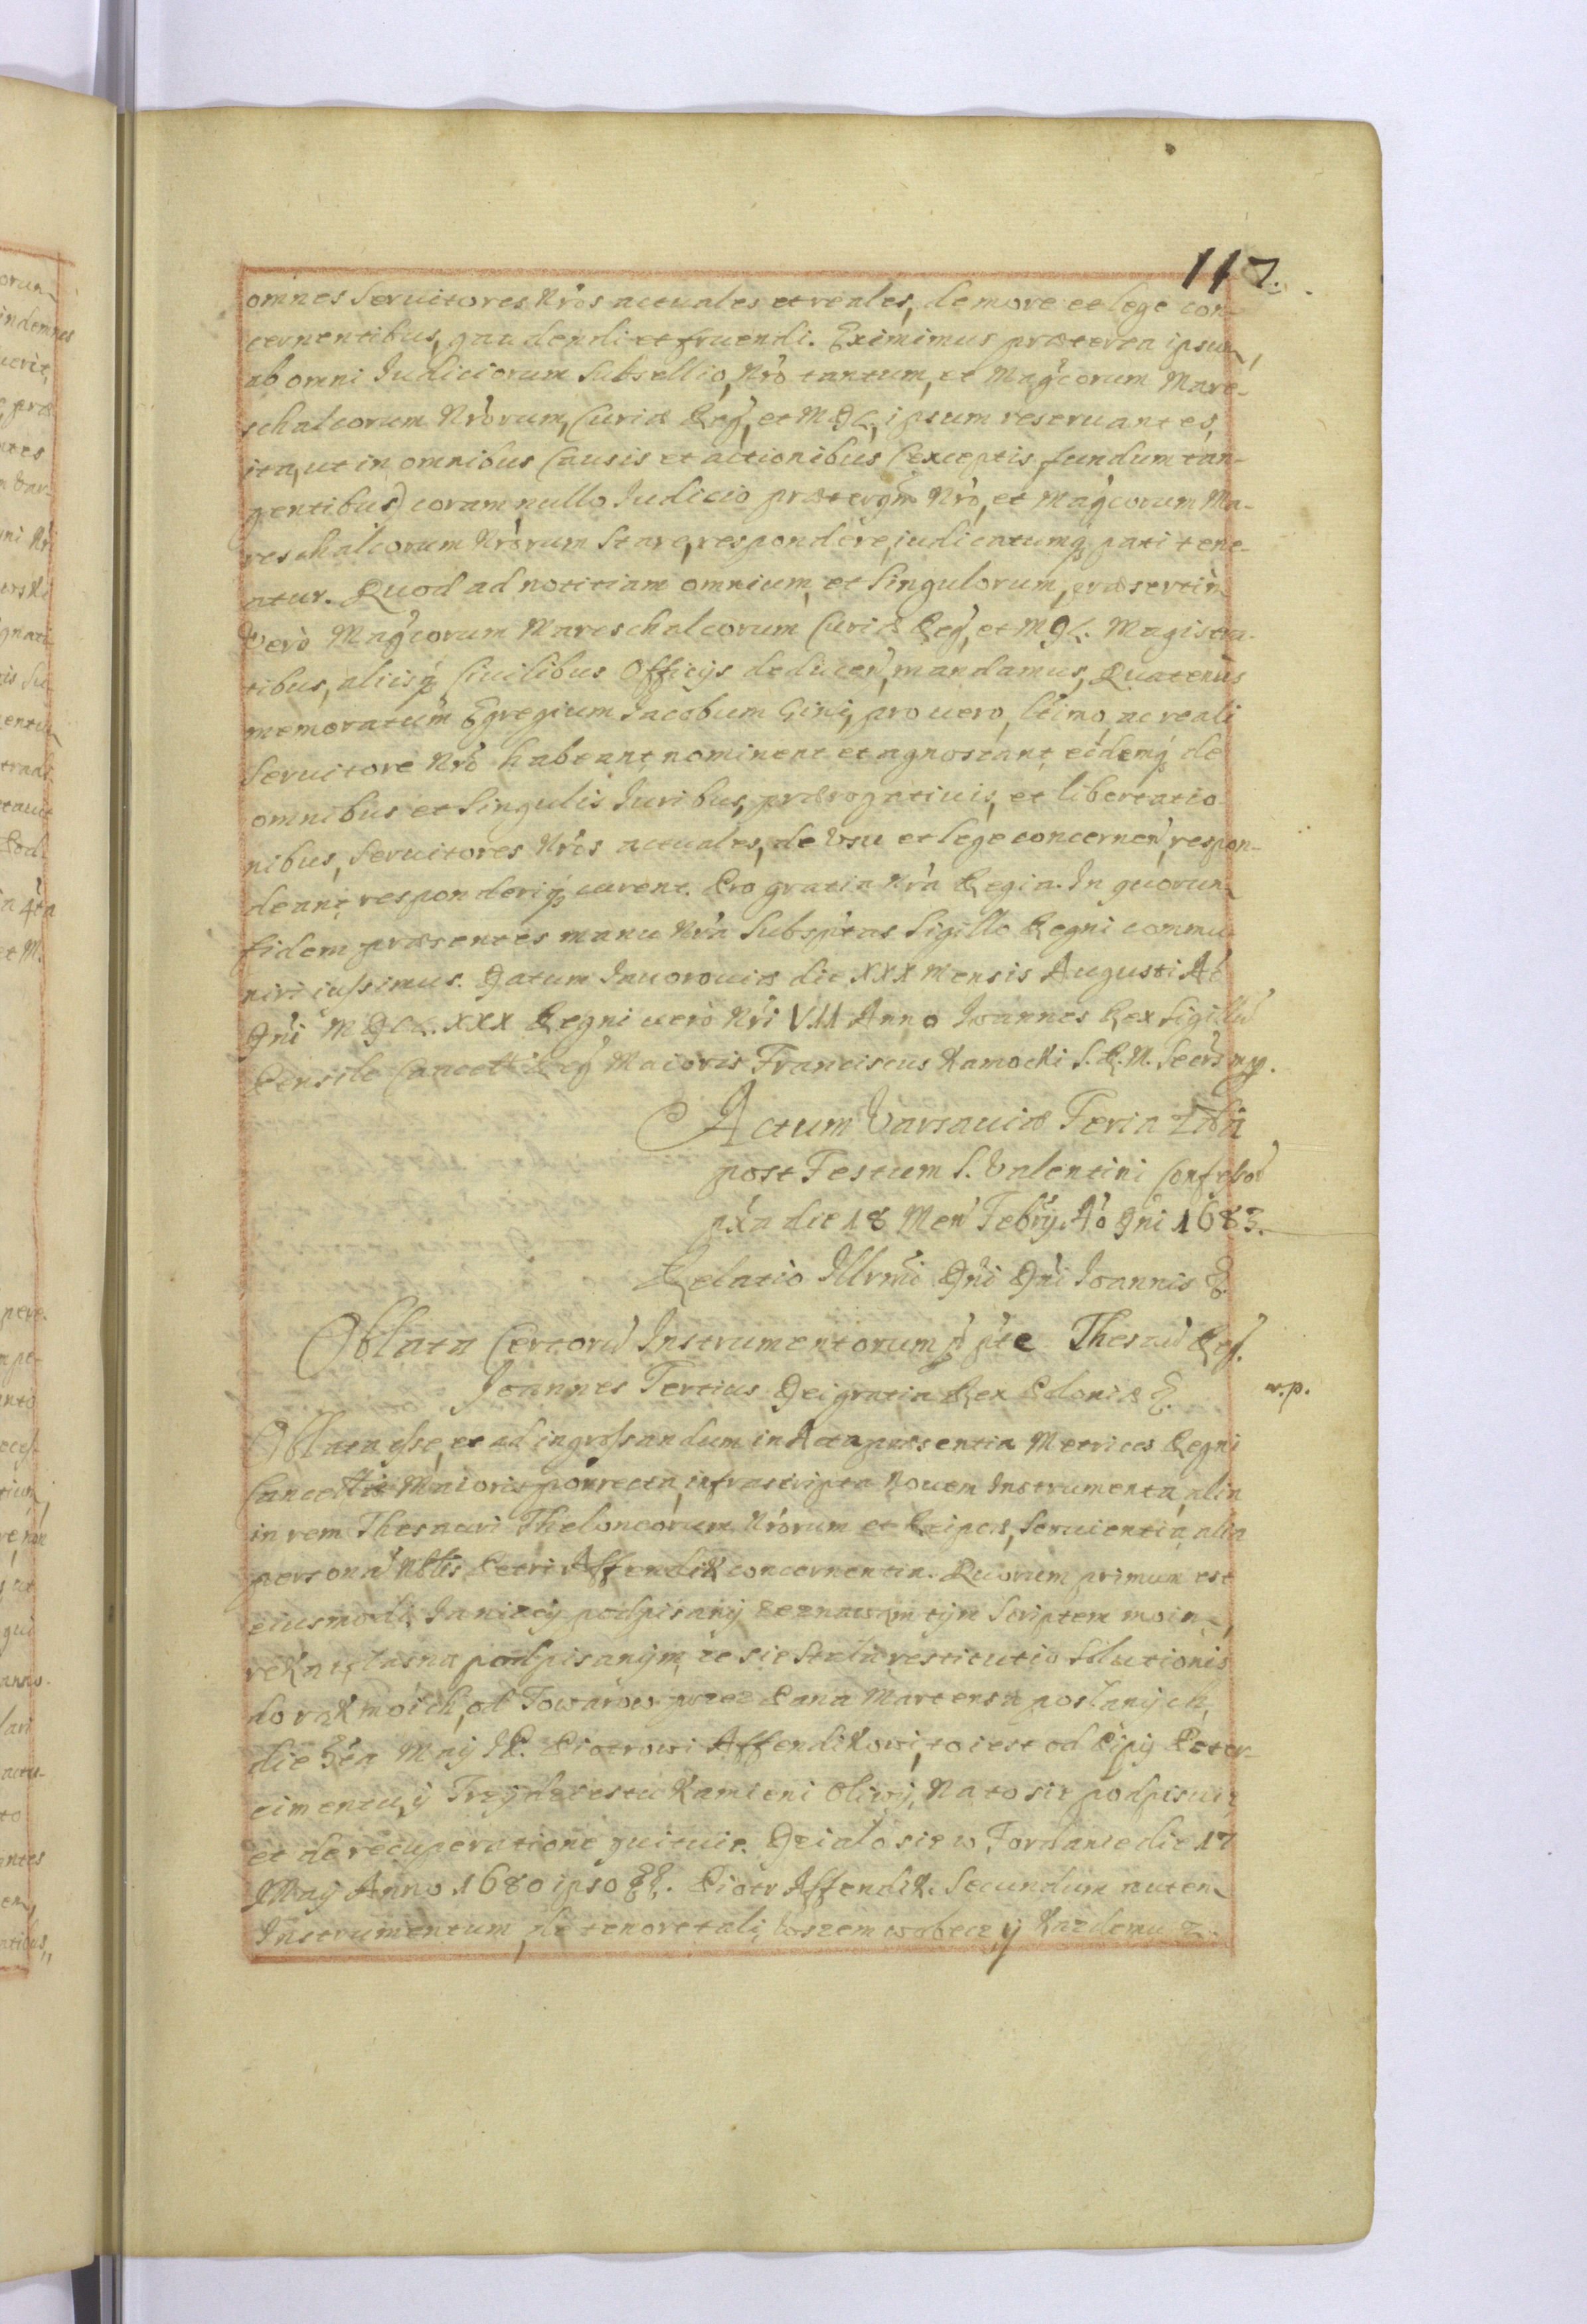 117.
omnes Seruitores Nrõs actuales et reales, de more et lege con-
cernentibus, gaudendi et fruendi. Eximimus præterea ipsum,
ab omni Iudiciorum Subsellio, Nrõ tantum, et Magcõrum Mare-
schalcorum Nrõrum, Curiæ Rẽg, et MDL, ipsum reseruantes,
ita, ut in omnibus Causis et actionibus (exceptis fundum tan-
gentibus) coram nullo Iudicio præterqm̃ Nrõ, et Magcõrum Ma-
reschalcorum Nrõrum Stare, respondere, iudicatumq; pati tene-
atur. Quod ad notitiam omnium, et Singulorum, præsertim
Verò Magcõrum Mareschalcorum Curiæ Rẽg, et MDL. Magistra-
tibus, aliisq; Ciuilibus Officijs deducen̾, mandamus, Quatenus
memoratum Egregium Iacobum Gini, pro uero, ltimo, ac reali
Seruitore Nrõ habeant, nominent et agnoscant, eidemq; de
omnibus et Singulis Iuribus, prærogatiuis, et libertatio-
nibus, Seruitores Nrõs actuales, de Vsu et lege concernen̾, respon-
deant, responderiq; curent. Pro gratia Nrã Regia. In quorum
fidem præsentes manu Nrã Subsptas Sigillo Regni commu-
niri iussimus. Datum Iauorouiæ die XXX Mensis Augusti Aõ
Dñi MDCL.XXX Regni uerò Nrĩ VII Anno Ioannes Rex Sigillũ
Pensile Cancell Rẽg Maioris Franciscus Kamocki S.R.M. Secrs mp.
Actum Varsauiæ Feria 2da
post Festum S. Valentini Confessor̾
pxã die 18 Men̾ Febrij Aõ Dñi 1683.
Relatio Illrmĩ Dñi Dñi Ioannis &
Oblata Certorũ Instrumentorum p pte Thesaũ Rẽg.
Joannes Tertius Dei gratia Rex Poloniæ &.
w.p.
Oblata esse, et ad ingrossandum in Acta præsentia Metrices Regni
Cancellriæ Maioris porrecta, infrascripta Nouem Instrumenta, alia
in rem Thesauri Theloneorum Nrõrum et Reipcæ, Seruientia, alia
personã Nblis Petri Affendik concernentia. Quorum primum est
eiusmodi, Ia nizey podpisany zeznawam tym Scriptem moim,
ręka własna podpisanym, ze sie stała restitutio Solutionis
do rąk moich, od Towarow przez Pana Martensa posłanych,
die 3tia Maij JP. Piotrowi Affendikowi, to iest od Pipy Peter-
cimentu, y Trzydziestu Kamieni Oliwy, Na to sie podpisuię
et de recuperatione quituie. Działo sie w Fordanie die 17
Maij Anno 1680 ipso &&. Piotr Affendik. Secundum autem
Instrumentum, de tenore tali, Wszem wobecz, y Kazdemu z